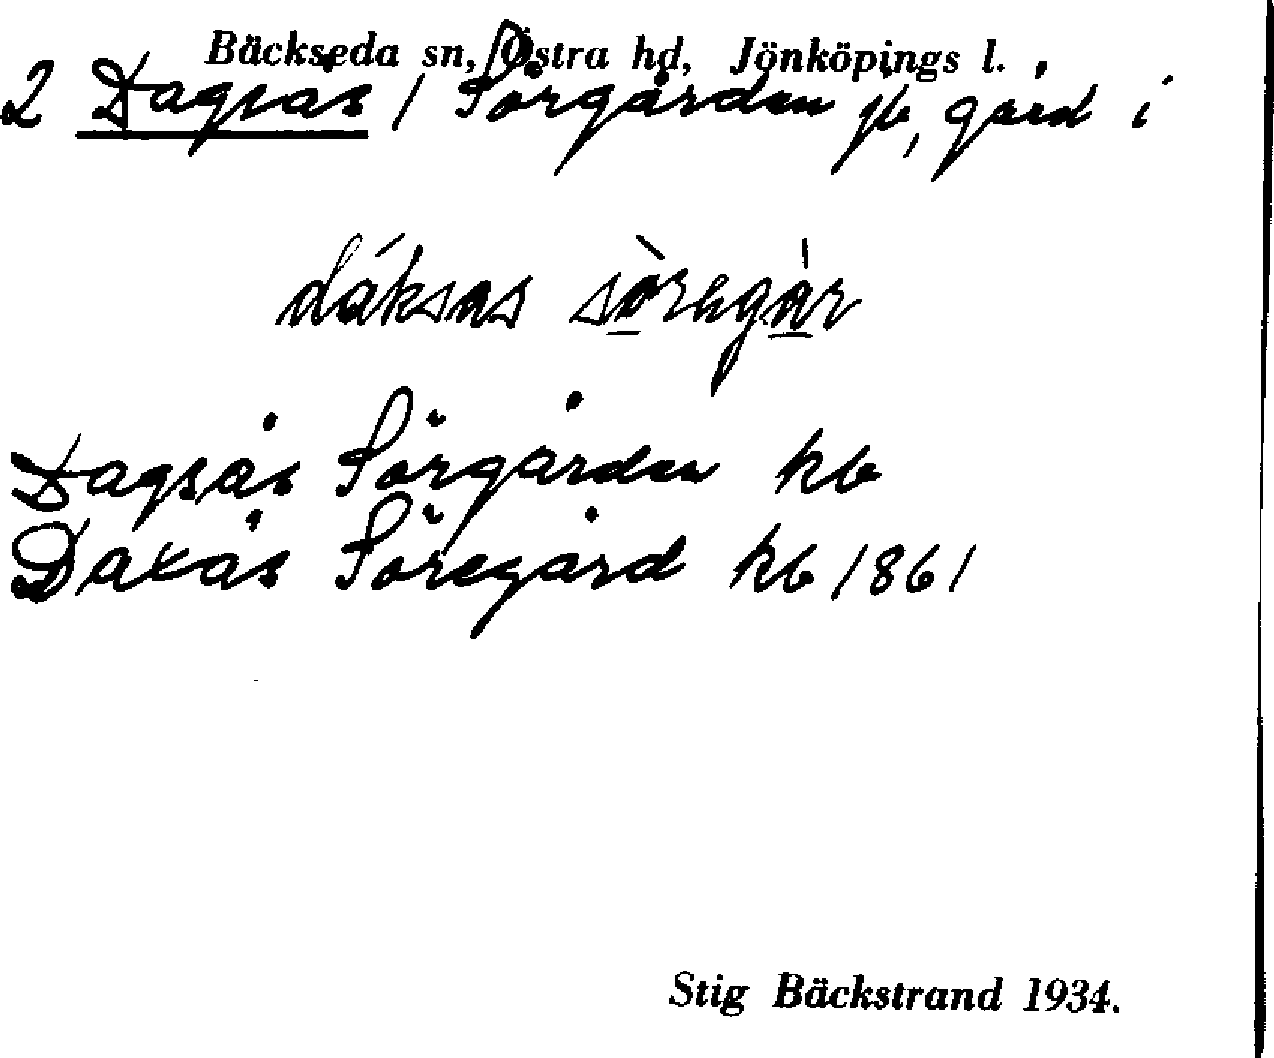 Bäckseda sn, Östra hd, Jönköpings l.
2 Dagsås / Sörgården jb, gård i
dáksas sòregàr
Dagsås Sörgården kb
Daxås Söregård kb 1861
Stig Bäckstrand 1934.